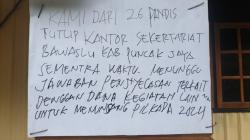 KAMI DARI 26 PANDIS
TUTUP KANTOR SEKERTARIAT
BAWASLU KAB PUNCAK JAYA
SEMENTRA WAKTU MENUNGGU
JAWABAN PENJYELESAN TERKAIT
DENGGAN DANA KEGIATAN LAIN²
UNTUK MENUNJANG PILKADA 2024